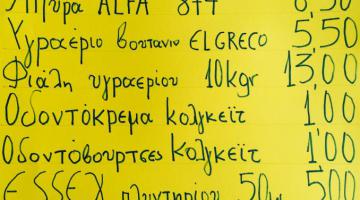 Μπύρα ALFA 8+4 6'50
Υγραέριο βουτανίο ELGRECO 5'50
Φιάλη υγραερίου 10kgr 13'00
Οδοντόκρεμα κολγκεϊτ 1'00
Οδοντόβουρτσες Κολγκεϊτ 1'00
ESSEX πλυντηρίου 500